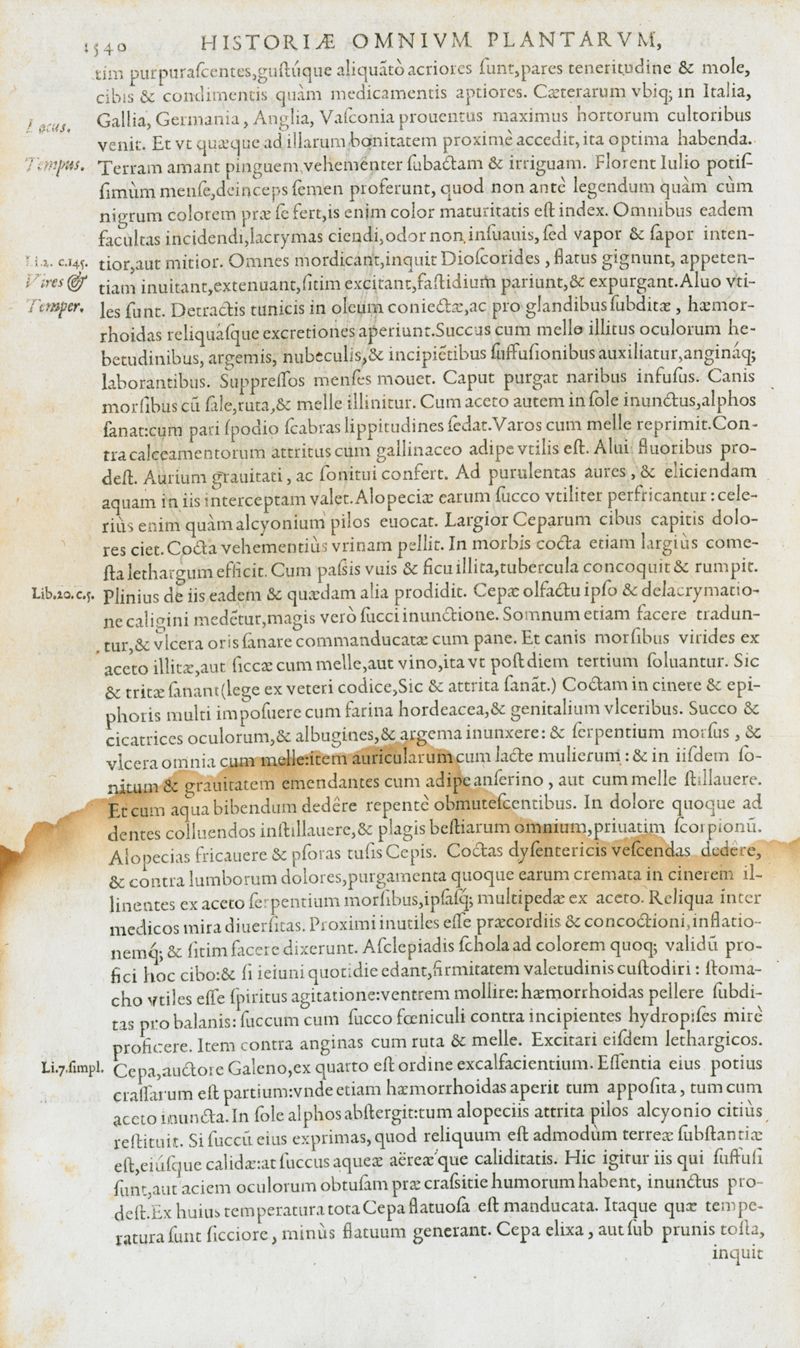 1540 HISTORIÆ OMNIVM PLANTARVM,
tim purpuraſcentes,guſtúque aliquãtò acriores ſunt,pares teneritudine & mole,
cibis & condimentis quàm medicamentis aptiores. Cæterarum vbiq; in Italia,
Locus. Gallia, Germania, Anglia, Vaſconia prouentus maximus hortorum cultoribus
venit. Et vt quæque ad illarum bonitatem proximè accedit, ita optima habenda.
Tempus. Terram amant pinguem vehementer ſubactam & irriguam. Florent Iulio potiſ-
ſimùm menſe,deinceps ſemen proferunt, quod non antè legendum quàm cùm
nigrum colorem præ ſe fert,is enim color maturitatis eſt index. Omnibus eadem
facultas incidendi,lacrymas ciendi,odor non inſuauis, ſed vapor & ſapor inten-
Li.2. c.145. tior,aut mitior. Omnes mordicant,inquit Dioſcorides, flatus gignunt, appeten-
Vires & tiam inuitant,extenuant,ſitim excitant,faſtidium pariunt,& expurgant.Aluo vti-
Temper. les ſunt. Detractis tunicis in oleum coniectæ,ac pro glandibus ſubditæ, hæmor-
rhoidas reliquáſque excretiones aperiunt.Succus cum melle illitus oculorum he-
betudinibus, argemis, nubeculis,& incipiẽtibus ſuffuſionibus auxiliatur,anginaq́;
laborantibus. Suppreſſos menſes mouet. Caput purgat naribus infuſus. Canis
morſibus cũ ſale,ruta,& melle illinitur. Cum aceto autem in ſole inunctus,alphos
ſanat:cum pari ſpodio ſcabras lippitudines ſedat.Varos cum melle reprimit.Con-
tra calceamentorum attritus cùm gallinaceo adipe vtilis eſt. Alui fluoribus pro-
deſt. Aurium grauitati, ac ſonitui confert. Ad purulentas aures, & eliciendam
aquam in iis interceptam valet.Alopeciæ earum ſucco vtiliter perfricantur:cele-
riùs enim quàm alcyonium pilos euocat. Largior Ceparum cibus capitis dolo-
res ciet.Cocta vehementiùs vrinam pellit. In morbis cocta etiam largiùs come-
ſta lethargum efficit. Cum paſsis vuis & ficu illita,tubercula concoquit & rumpit.
Lib.20.c.5. Plinius de iis eadem & quædam alia prodidit. Cepæ olfactu ipſo & delacrymatio-
ne caligini medẽtur,magis verò ſucci inunctione. Somnum etiam facere tradun-
tur,& vlcera oris ſanare commanducatæ cum pane. Et canis morſibus virides ex
aceto illitæ,aut ſiccæ cum melle,aut vino,ita vt poſt diem tertium ſoluantur. Sic
& tritæ ſanant(lege ex veteri codice,Sic & attrita ſanãt.) Coctam in cinere & epi-
phoris multi impoſuere cum farina hordeacea,& genitalium vlceribus. Succo &
cicatrices oculorum,& albugines,& argema inunxere: & ſerpentium morſus, &
vlcera omnia cum melle:item auricularum cum lacte mulierum: & in iiſdem ſo-
nitum & grauitatem emendantes cum adipe anſerino, aut cum melle ſtillauere.
Et cum aqua bibendum dedêre repentè obmuteſcentibus. In dolore quoque ad
dentes colluendos inſtillauere,& plagis beſtiarum omnium,priuatim ſcorpionũ.
Alopecias fricauere & pſoras tuſis Cepis. Coctas dyſentericis veſcendas dedere,
& contra lumborum dolores,purgamenta quoque earum cremata in cinerem il-
linentes ex aceto ſerpentium morſibus,ipſaſq́; multipedæ ex aceto. Reliqua inter
medicos mira diuerſitas. Proximi inutiles eſſe præcordiis & concoctioni,inflatio-
nemq́; & ſitim facere dixerunt. Aſclepiadis ſchola ad colorem quoq; validũ pro-
fici hoc cibo:& ſi ieiuni quotidie edant,firmitatem valetudinis cuſtodiri: ſtoma-
cho vtiles eſſe ſpiritus agitatione:ventrem mollire:hæmorrhoidas pellere ſubdi-
tas pro balanis: ſuccum cum ſucco fœniculi contra incipientes hydropiſes mirè
proficere. Item contra anginas cum ruta & melle. Excitari eiſdem lethargicos.
Li.7.ſimpl. Cepa,auctore Galeno,ex quarto eſt ordine excalfacientium. Eſſentia eius potius
craſſarum eſt partium:vnde etiam hæmorrhoidas aperit tum appoſita, tum cum
aceto inuncta.In ſole alphos abſtergit:tum alopeciis attrita pilos alcyonio citiùs
reſtituit. Si ſuccũ eius exprimas,quod reliquum eſt admodùm terreæ ſubſtantiæ
eſt,eiúſque calidæ:at ſuccus aqueæ aëreæque caliditatis. Hic igitur iis qui ſuffuſi
ſunt,aut aciem oculorum obtuſam præ craſsitie humorum habent, inunctus pro-
deſt.Ex huius temperatura tota Cepa flatuoſa eſt manducata. Itaque quæ tempe-
ratura ſunt ſicciore, minùs flatuum generant. Cepa elixa, aut ſub prunis toſta,
inquit